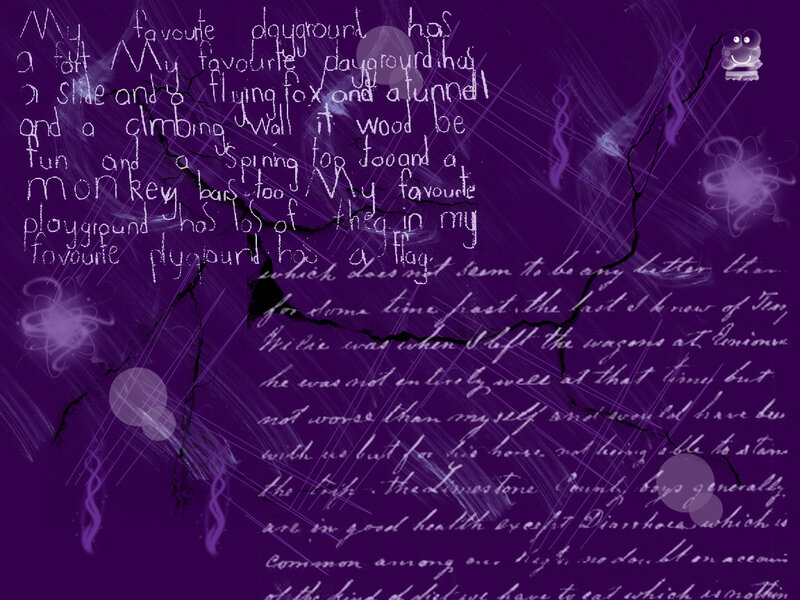 My favourite playground has
a fort My favourite playground has
a slide and a flying fox and a tunnell
and a climbing wall it wood be
fun and a spining top too and a
monkey bars too My favourite
playground has lots of in my
favourite plygrourd has a flag.
which does not seem to be any better than
for some time past. the last I know of Tiny
Wilie was when I left the wagons at
he was not entirely well at that time but
not worse than myself and would have been
with us but for his horse not being able to stand
the trip. the Limestone County boys generally
are in good health except Diarrhoea which is
common among our Regt. no doubt on account
of the kind of diet we have to eat which is nothin